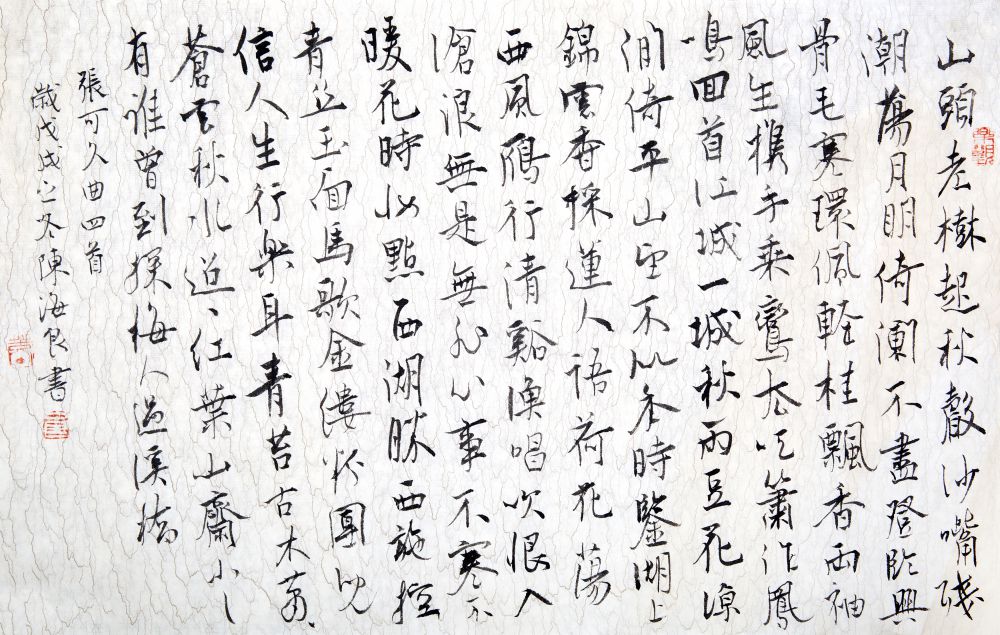 山頭老樹起秋聲沙嘴殘
潮蕩月明倚闌不盡登臨興
骨毛寒環佩輕桂飄香兩袖
風生攜手乘鸞去吹簫作鳳
鳴回首江城一城秋雨豆花涼
閒倚平山望不似年時鑒湖上
錦雲香採蓮人語荷花蕩
西風鴈行清谿漁唱吹恨入
滄浪無是無非心事不寒不
暖花時妝點西湖勝西施控
青丝玉面馬歌金縷粉團兒
信人生行樂耳青苔古木蕭〻
蒼雲秋水迢〻红葉山齋小〻
有誰曾到探梅人過溪橋
張可久曲四首
歲戊戌之冬陳海良書